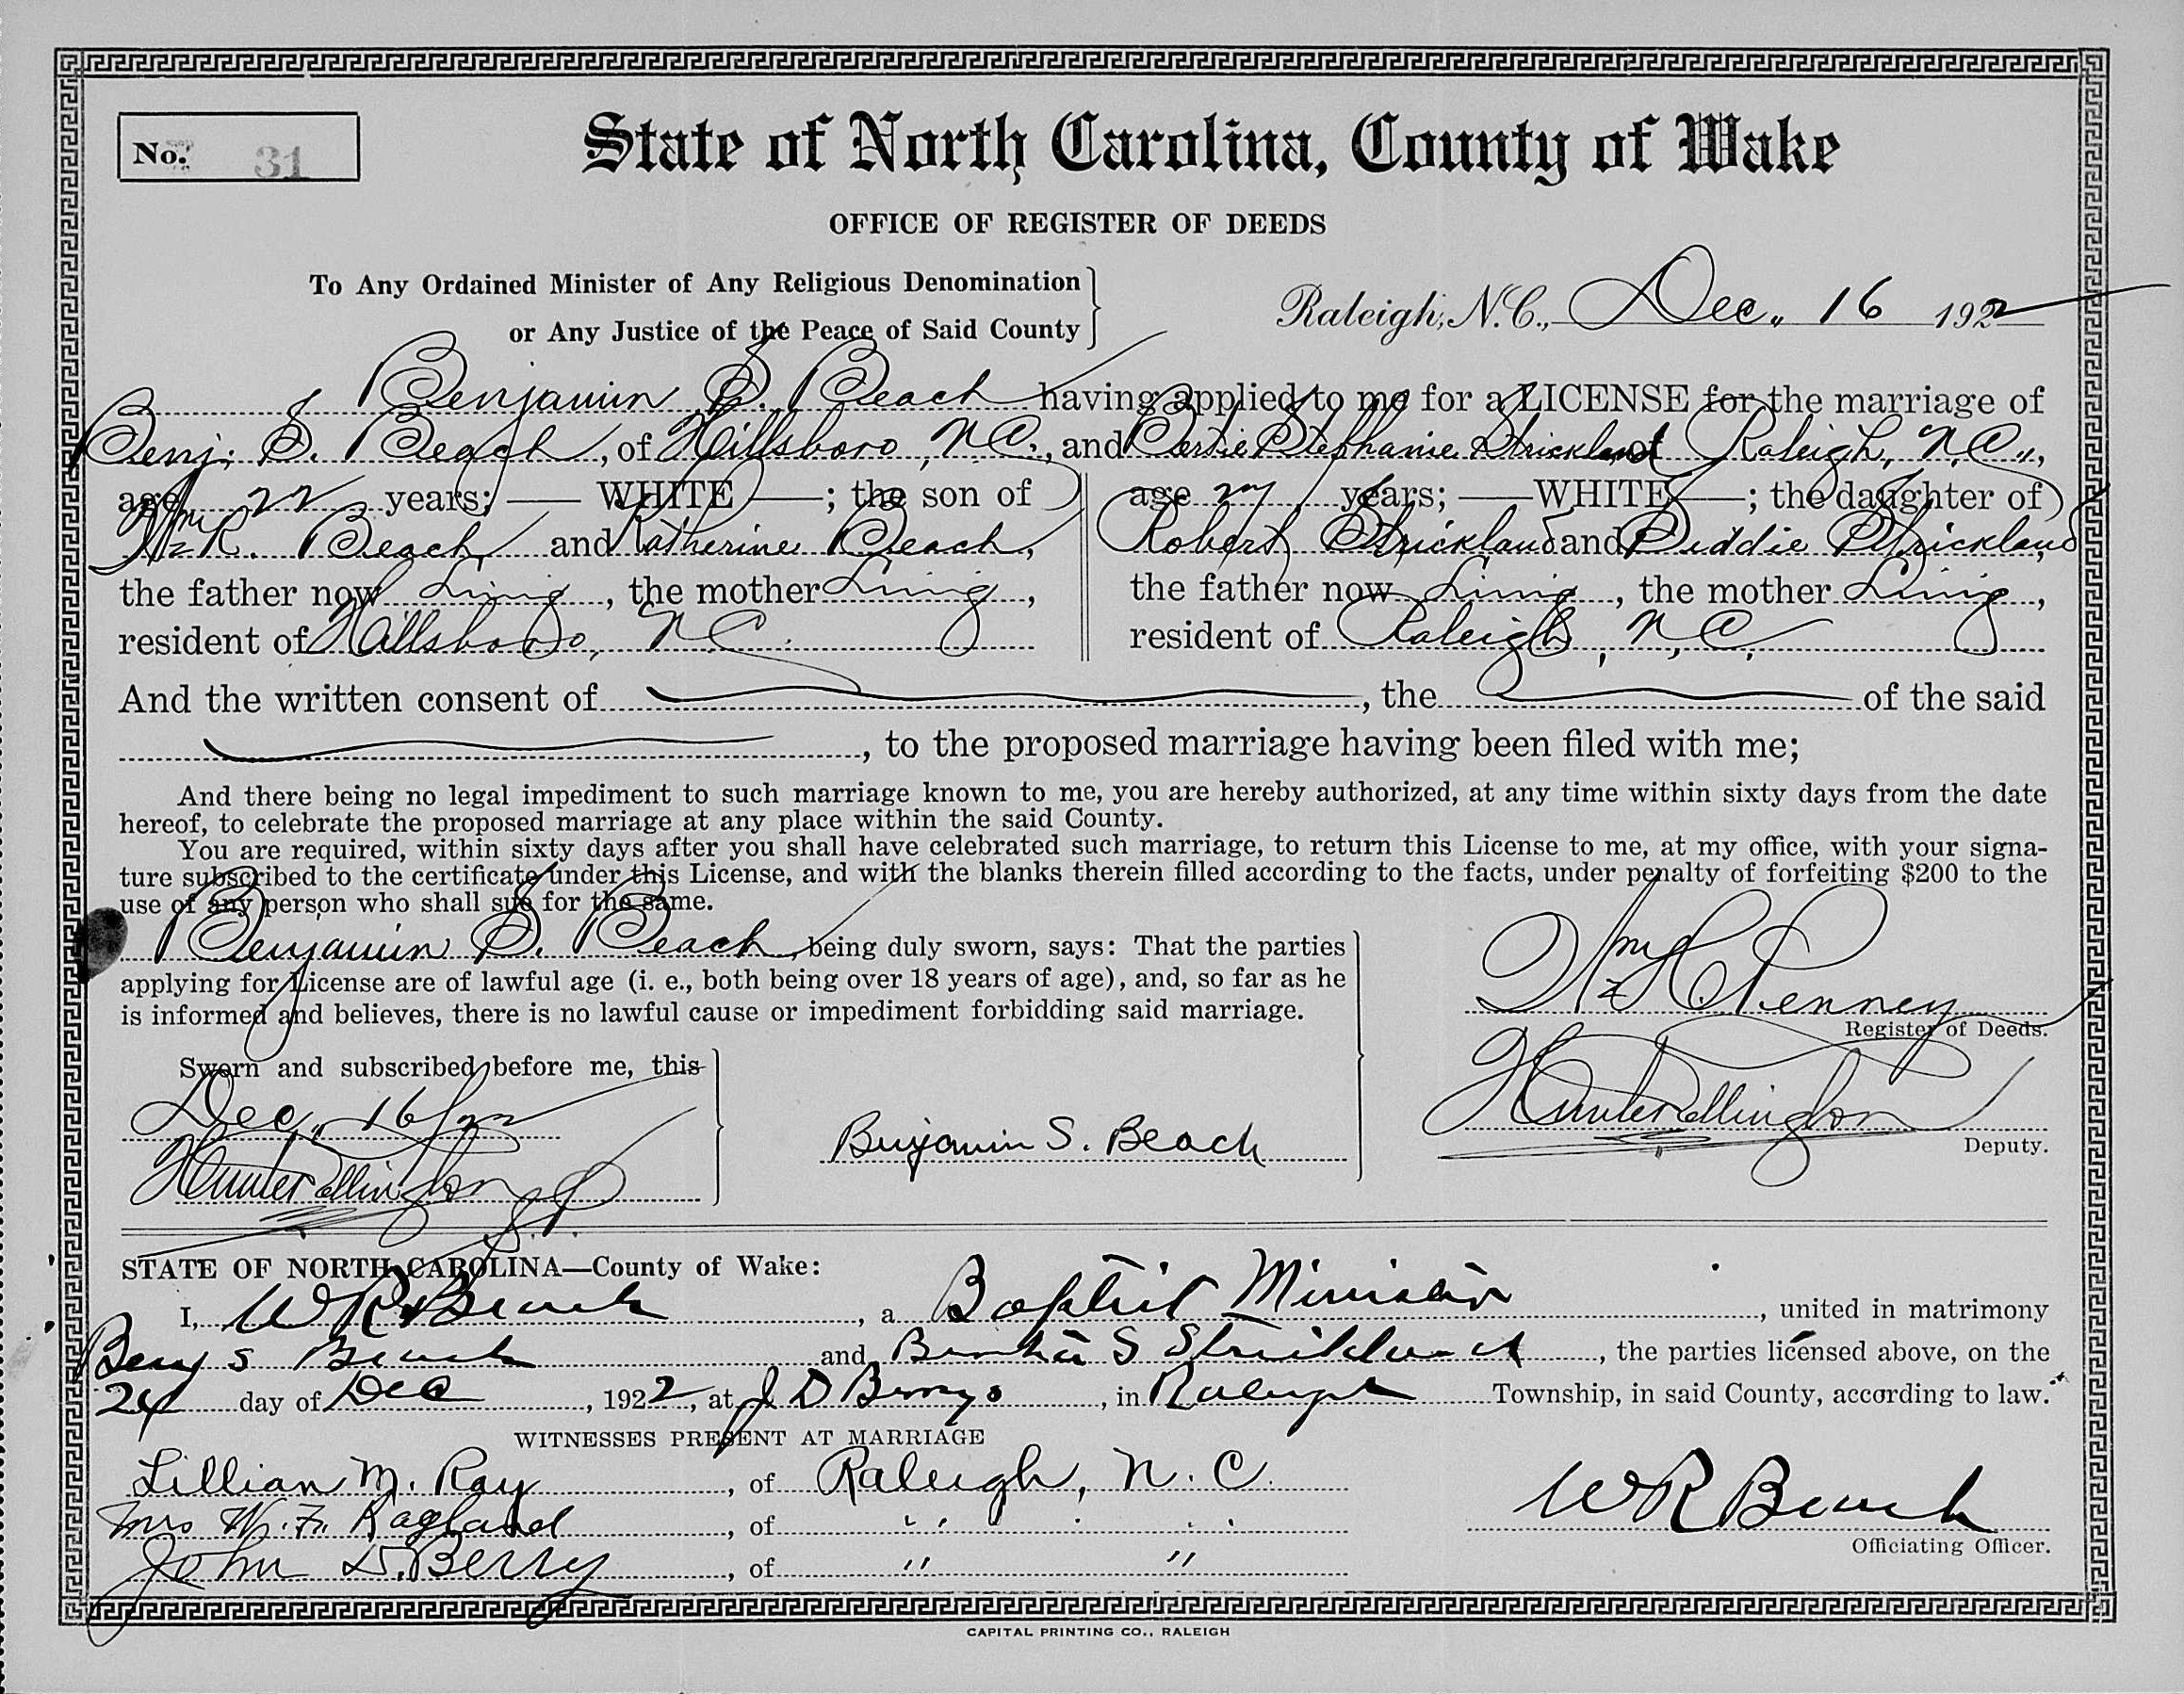 No. 31
State of North Carolina, County of Wake
OFFICE OF REGISTER OF DEEDS
To Any Ordained Minister of Any Religious Denomination
or Any Justice of the Peace of Said County
Raleigh, N. C., Dec. 16 1922
Benjamin S. Beach having applied to me for a LICENSE for the marriage of
Benj. S. Beach, of Hillsboro, N.C., and Bertie Stephanie Strickland of Raleigh, N.C.,
age 22 years; WHITE; the son of
Wm R. Beach and Katherine Beach,
the father now Living, the mother Living,
resident of Hillsboro, N.C.
age years; WHITE; the daughter of
Robert Strickland and Biddie Strickland,
the father now Living, the mother Living,
resident of Raleigh, N.C.
And the written consent of , the of the said
, to the proposed marriage having been filed with me;
And there being no legal impediment to such marriage known to me, you are hereby authorized, at any time within sixty days from the date
hereof, to celebrate the proposed marriage at any place within the said County.
You are required, within sixty days after you shall have celebrated such marriage, to return this License to me, at my office, with your signa-
ture subscribed to the certificate under this License, and with the blanks therein filled according to the facts, under penalty of forfeiting $200 to the
use of any person who shall sue for the same.
Benjamin S. Beach, being duly sworn, says: That the parties
applying for License are of lawful age (i. e., both being over 18 years of age), and, so far as he
is informed and believes, there is no lawful cause or impediment forbidding said marriage.
Wm H Penney
Register of Deeds.
Sworn and subscribed before me, this
Dec. 16/22
Hunter Ellington
J.P.
Benjamin S. Beach
Hunter Ellington
Deputy.
STATE OF NORTH CAROLINA—County of Wake:
I, W R Beach, a Baptist Minister, united in matrimony
Benj S Beach and S Strickland, the parties licensed above, on the
24 day of Dec, 1922, at J D Berrys, in Raleigh Township, in said County, according to law.
WITNESSES PRESENT AT MARRIAGE
Lillian M. Ray, of Raleigh, N. C.
Mrs W. F. Ragland, of " "
John D. Berry, of " "
W R Beach
Officiating Officer.
CAPITAL PRINTING CO., RALEIGH